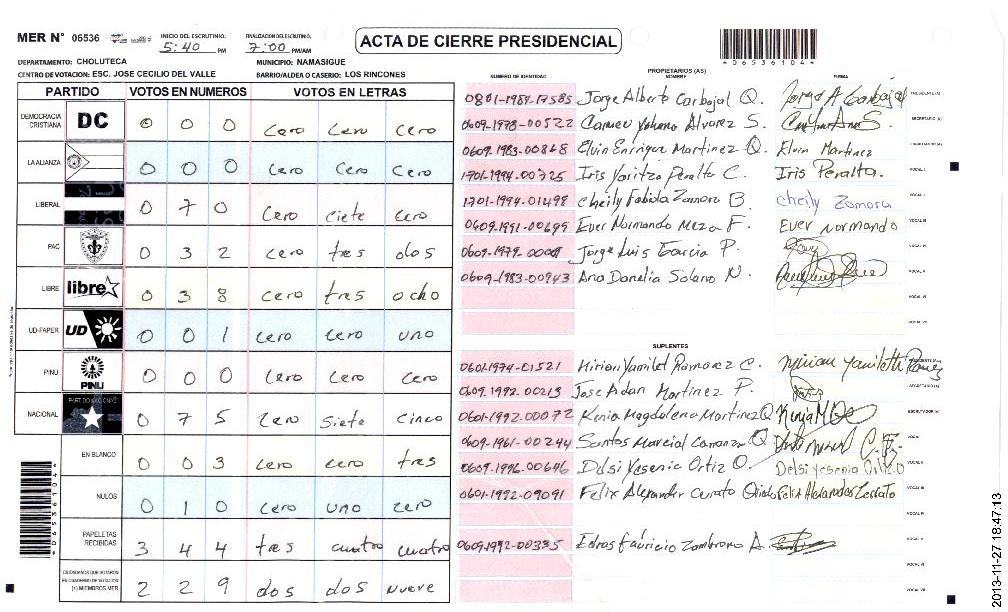 MER N° 06536 INICIO DEL ESCRUTINIO: 5:40 PM FINALIZACION DEL ESCRUTINIO: 7:00 PM/AM
ACTA DE CIERRE PRESIDENCIAL
*06536104*
DEPARTAMENTO: CHOLUTECA MUNICIPIO: NAMASIGUE
CENTRO DE VOTACION: ESC. JOSE CECILIO DEL VALLE BARRIO/ALDEA O CASERIO: LOS RINCONES
PARTIDO VOTOS EN NUMEROS VOTOS EN LETRAS
DEMOCRACIA CRISTIANA DC 0 0 0 Cero Cero Cero
LA ALIANZA 0 0 0 Cero Cero Cero
LIBERAL 0 7 0 Cero ciete Cero
PAC 0 3 2 cero tres dos
LIBRE libre 0 3 8 cero tres ocho
UD-FAPER UD 0 0 1 cero cero uno
PINU PINU 0 0 0 Cero Cero Cero
NACIONAL 0 7 5 Cero Siete Cinco
EN BLANCO 0 0 3 cero cero tres
NULOS 0 1 0 cero uno zero
PAPELETAS RECIBIDAS 3 4 4 tres cuatro cuatro
CIUDADANOS QUE VOTARON EN CUADERNO DE VOTACION (+) MIEMBROS MER 2 2 9 dos dos nueve
*06536104*
PROPIETARIOS (AS)
NUMERO DE IDENTIDAD NOMBRE FIRMA
0801-1984-17585 Jorge Alberto Carbajal Q. Jorge A Carbajal PRESIDENTE (A)
0609-1978-00522 Carmen Yohana Alvarez S. SECRETARIO (A)
0609-1983-00868 Elvin Enrique Martinez O. Elvin Martinez ESCRUTADOR (A)
1701-1994-00725 Iris Yaritza Peralta C. Iris Peralta. VOCAL I
1701-1994-01498 Cheily Fabida Zamora B. Cheily Zamora VOCAL II
0609-1991-00695 Ever Normando Meza F. Ever Normando VOCAL III
0609-1979- Jorge Luis Garcia P. VOCAL IV
0609-1983-00943 Ana Danelia Solano N. VOCAL V
VOCAL VI
VOCAL VII
SUPLENTES
0601-1974-01521 Mirian Yamilet Ramorez C. Mirian Yamileth PRESIDENTE (A)
0609-1992-00213 Jose Adan Martinez P. SECRETARIO (A)
0601-1992-00072 Kenia Magdalena Martinez Q ESCRUTADOR (A)
0609-1961-00244 Santos Marcial Carranza Q VOCAL I
0609-1996-00646 Delsi Yesenia Ortiz O. Delsi Yesenia Ortiz O VOCAL II
0601-1992-09091 Felix Alexander VOCAL III
VOCAL IV
0609-1992-00335 Edras Fabricio Zambrano A. VOCAL V
VOCAL VI
VOCAL VII
2013-11-27 18:47:13